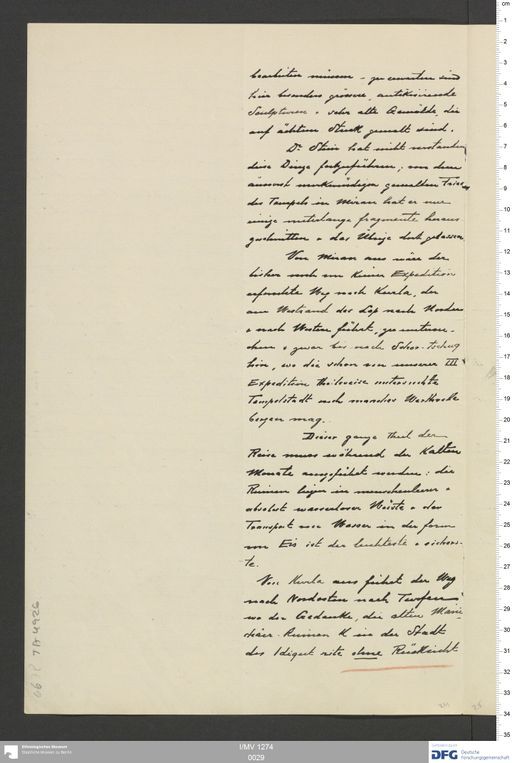 bearbeiten müssen – zu erwarten sind
hier besonders grössere, antikisirende
Sculpturen + sehr alte Gemälde, die
auf ächtem Stuck gemalt sind.
Dr. Stein hat nicht verstanden
diese Dinge fortzuführen; von dem
äusserst merkwürdigen gemalten Fries
des Tempels in Miran hat er nur
einige meterlange fragmente heraus
geschnitten + das Übrige dort gelassen
Von Miran aus wäre der
bisher noch von keiner Expedition
erforschte Weg nach Kurla, der
am Westrand des Lop nach Norden
+ nach Westen führt, zu untersu-
chen + zwar bis nach Schor-Tschug
hin, wo die schon von unserer III
Expedition theilweise untersuchte
Tempelstadt noch manches Werthvolle
bergen mag.
Dieser ganze theil der
Reise muss während der Kalten
Monate ausgeführt werden: die
Ruinen liegen in menschenleerer +
absolut wasserloser Wüste + der
Transport von Wasser in der form
von Eis ist der leichteste + sichers-
te.
Von Kurla aus führt der Weg
nach Nordosten nach Turfan;
wo der Gedanke, die alten Mani-
chäer-Ruinen K in der Stadt
des Idiqut ohne Rücksicht
7A 4926
I/MV 1274
0029
Ethnologisches Museum
Staatliche Museen zu Berlin
DFG
Deutsche
Forschungsgemeinschaft
cm
1
2
3
4
5
6
7
8
9
10
11
12
13
14
15
16
17
18
19
20
21
22
23
24
25
26
27
28
29
30
31
32
33
34
35